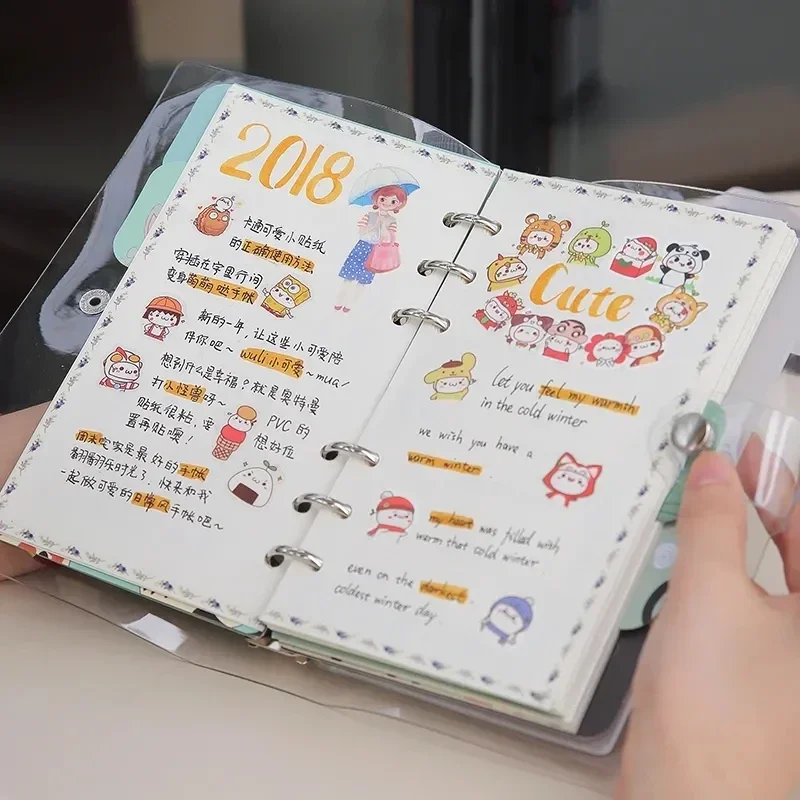 2018
卡通可爱小贴纸
的正确使用方法
穿插在字里行间
变身萌萌哒手帐
新的一年,让这些小可爱陪
伴你吧~ wuli小可爱~mua/
想到什么是幸福?就是奥特曼
打小怪兽呀~
贴纸很粘,要 PVC的
置再贴噢! 想好位
周末宅家是最好的手帐
翻翻乐时光了,快来和我
一起做可爱的日常风手帐吧~
Cute
let you feel my warmth
in the cold winter
we wish you have a
warm winter
my heart was filled with
warm that cold winter
even on the darkest,
coldest winter day.